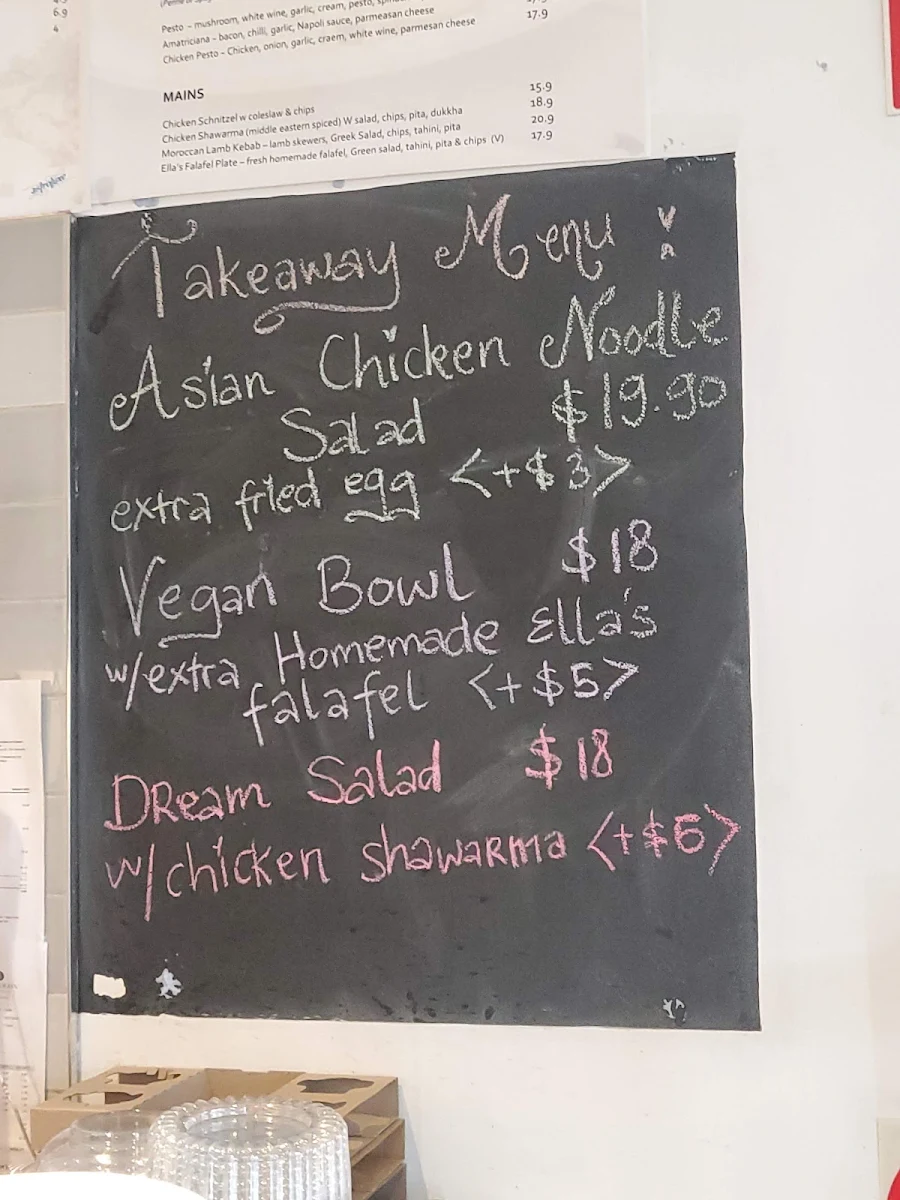 6.9
4
Pesto – mushroom, white wine, garlic, cream, pesto,
Amatriciana – bacon, chilli, garlic, Napoli sauce, parmeasan cheese
Chicken Pesto – Chicken, onion, garlic, craem, white wine, parmesan cheese 17.9
MAINS
Chicken Schnitzel w coleslaw & chips 15.9
Chicken Shawarma (middle eastern spiced) W salad, chips, pita, dukkha 18.9
Moroccan Lamb Kebab – lamb skewers, Greek Salad, chips, tahini, pita 20.9
Ella's Falafel Plate – fresh homemade falafel, Green salad, tahini, pita & chips (V) 17.9
Takeaway Menu :
Asian Chicken Noodle
Salad $19.90
extra fried egg <+$3>
Vegan Bowl $18
w/extra Homemade Ella's
falafel <+$5>
DReam Salad $18
w/chicken shawaRma <+$6>